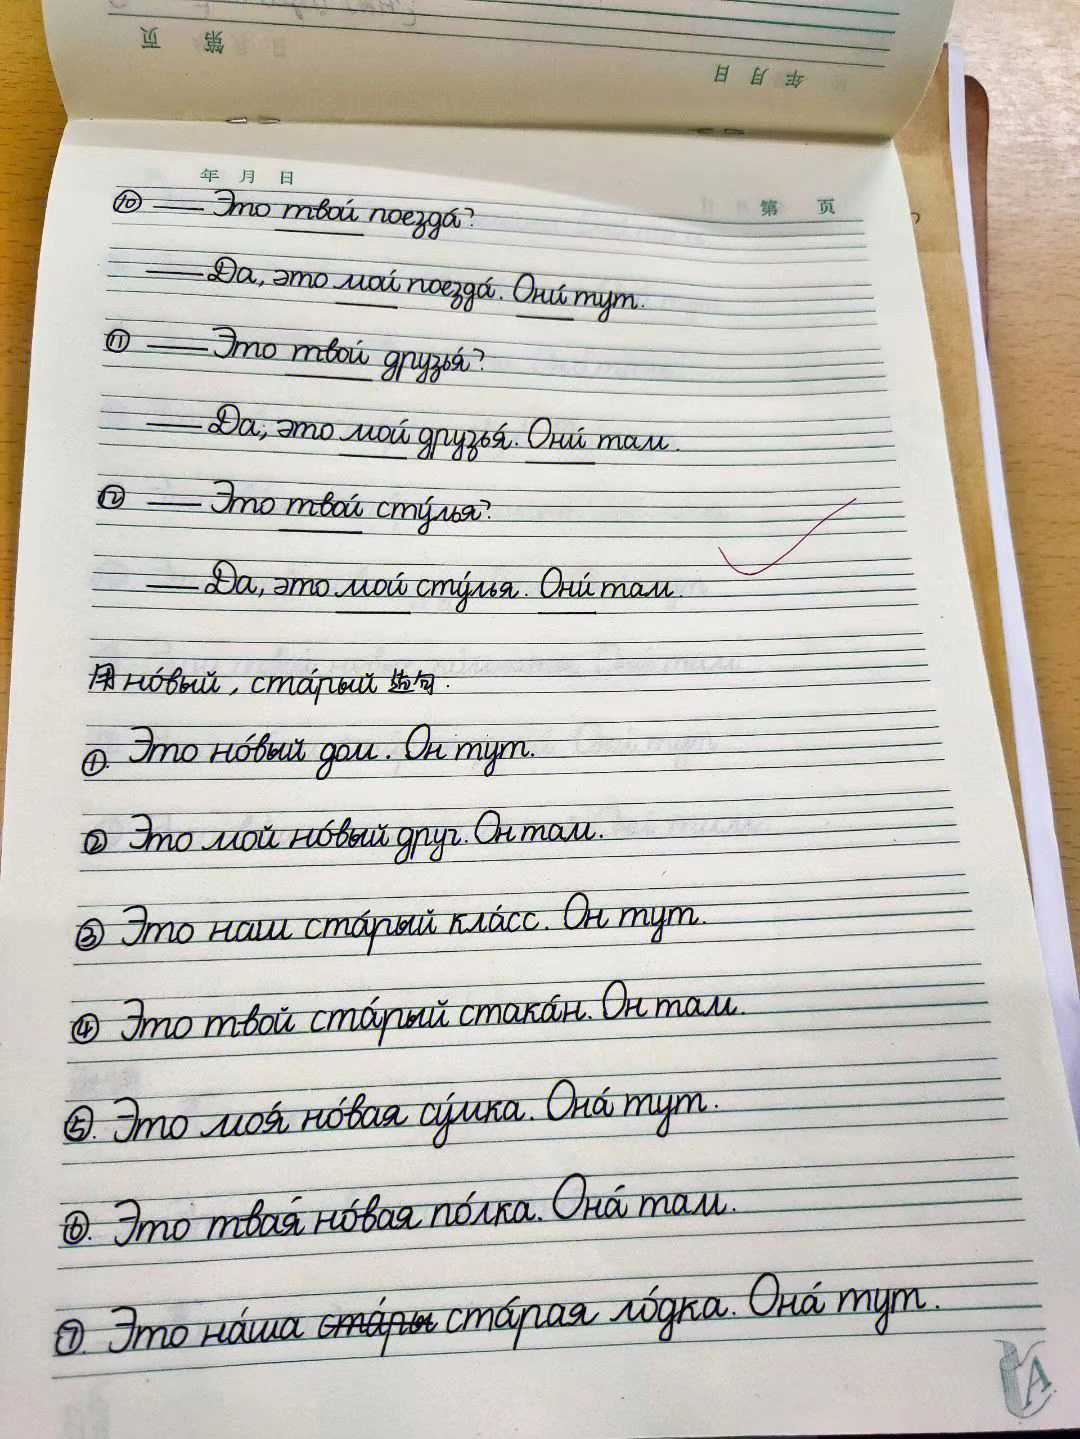 第 页
年 月 日
年 月 日
第 页
⑩ — Это твои́ поезда́?
— Да, это мои́ поезда́. Они́ тут.
⑪ — Это твои́ друзья́?
— Да, это мои́ друзья́. Они́ там.
⑫ — Это твои́ сту́лья?
— Да, это мои́ сту́лья. Они́ там.
用 но́вый, ста́рый 造句.
①. Это но́вый дом. Он тут.
② Это мой но́вый друг. Он там.
③ Это наш ста́рый кла́сс. Он тут.
④ Это твой ста́рый стака́н. Он там.
⑤. Это моя́ но́вая су́мка. Она́ тут.
⑥. Это твая́ но́вая по́лка. Она́ там.
⑦. Это на́ша ста́ры ста́рая ло́дка. Она́ тут.
A